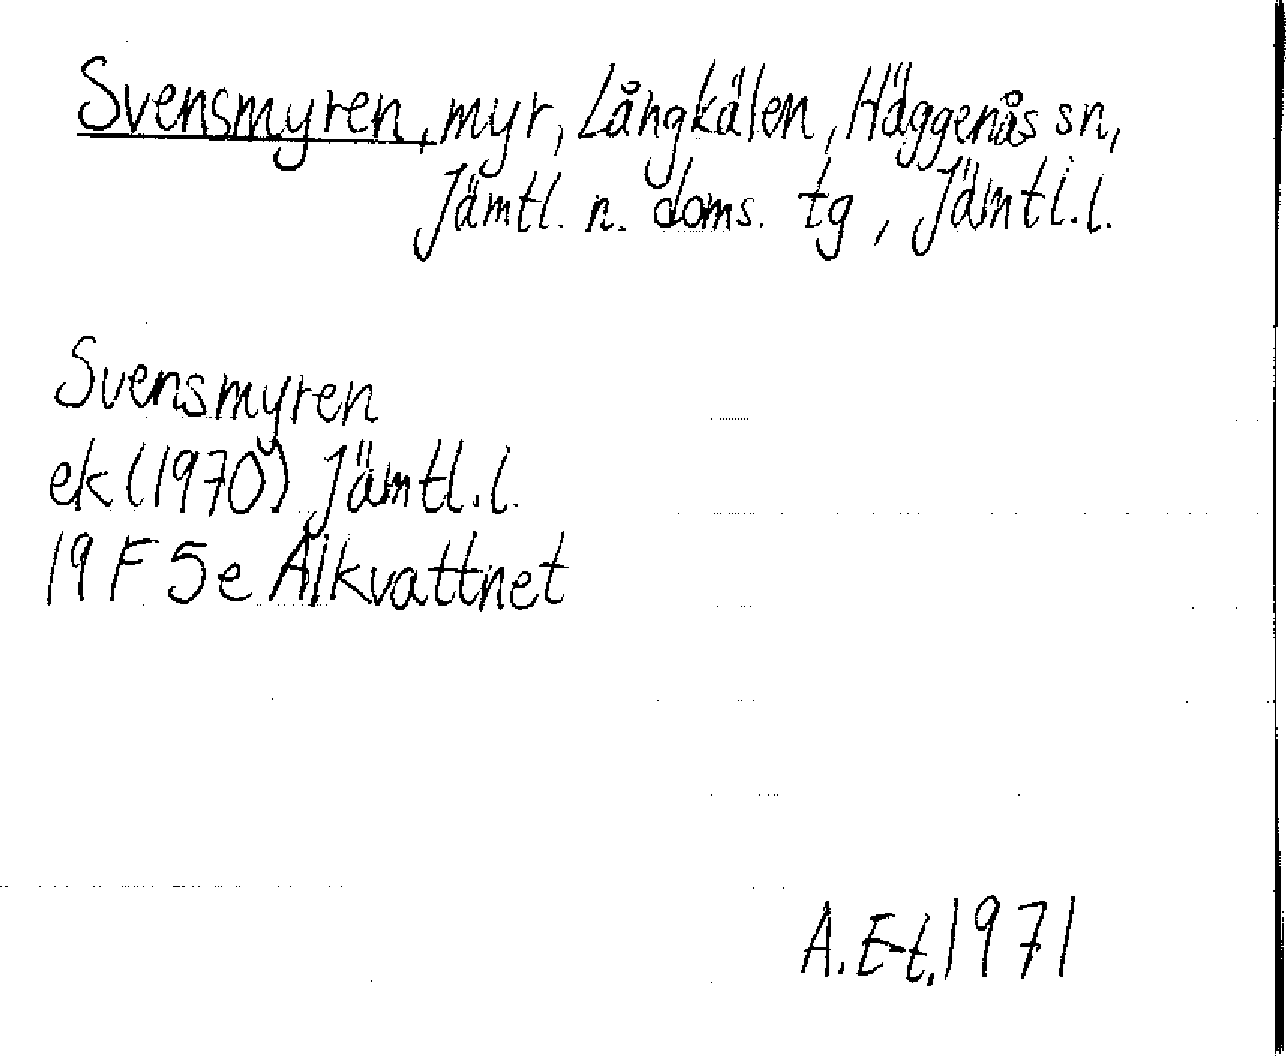 Svensmyren, myr, Långkälen, Häggenås sn,
Jämtl. n. doms. tg, Jämtl. l.
Svensmyren
ek (1970) Jämtl. l.
19 F 5e Ålkvattnet
A. E-t. 1971